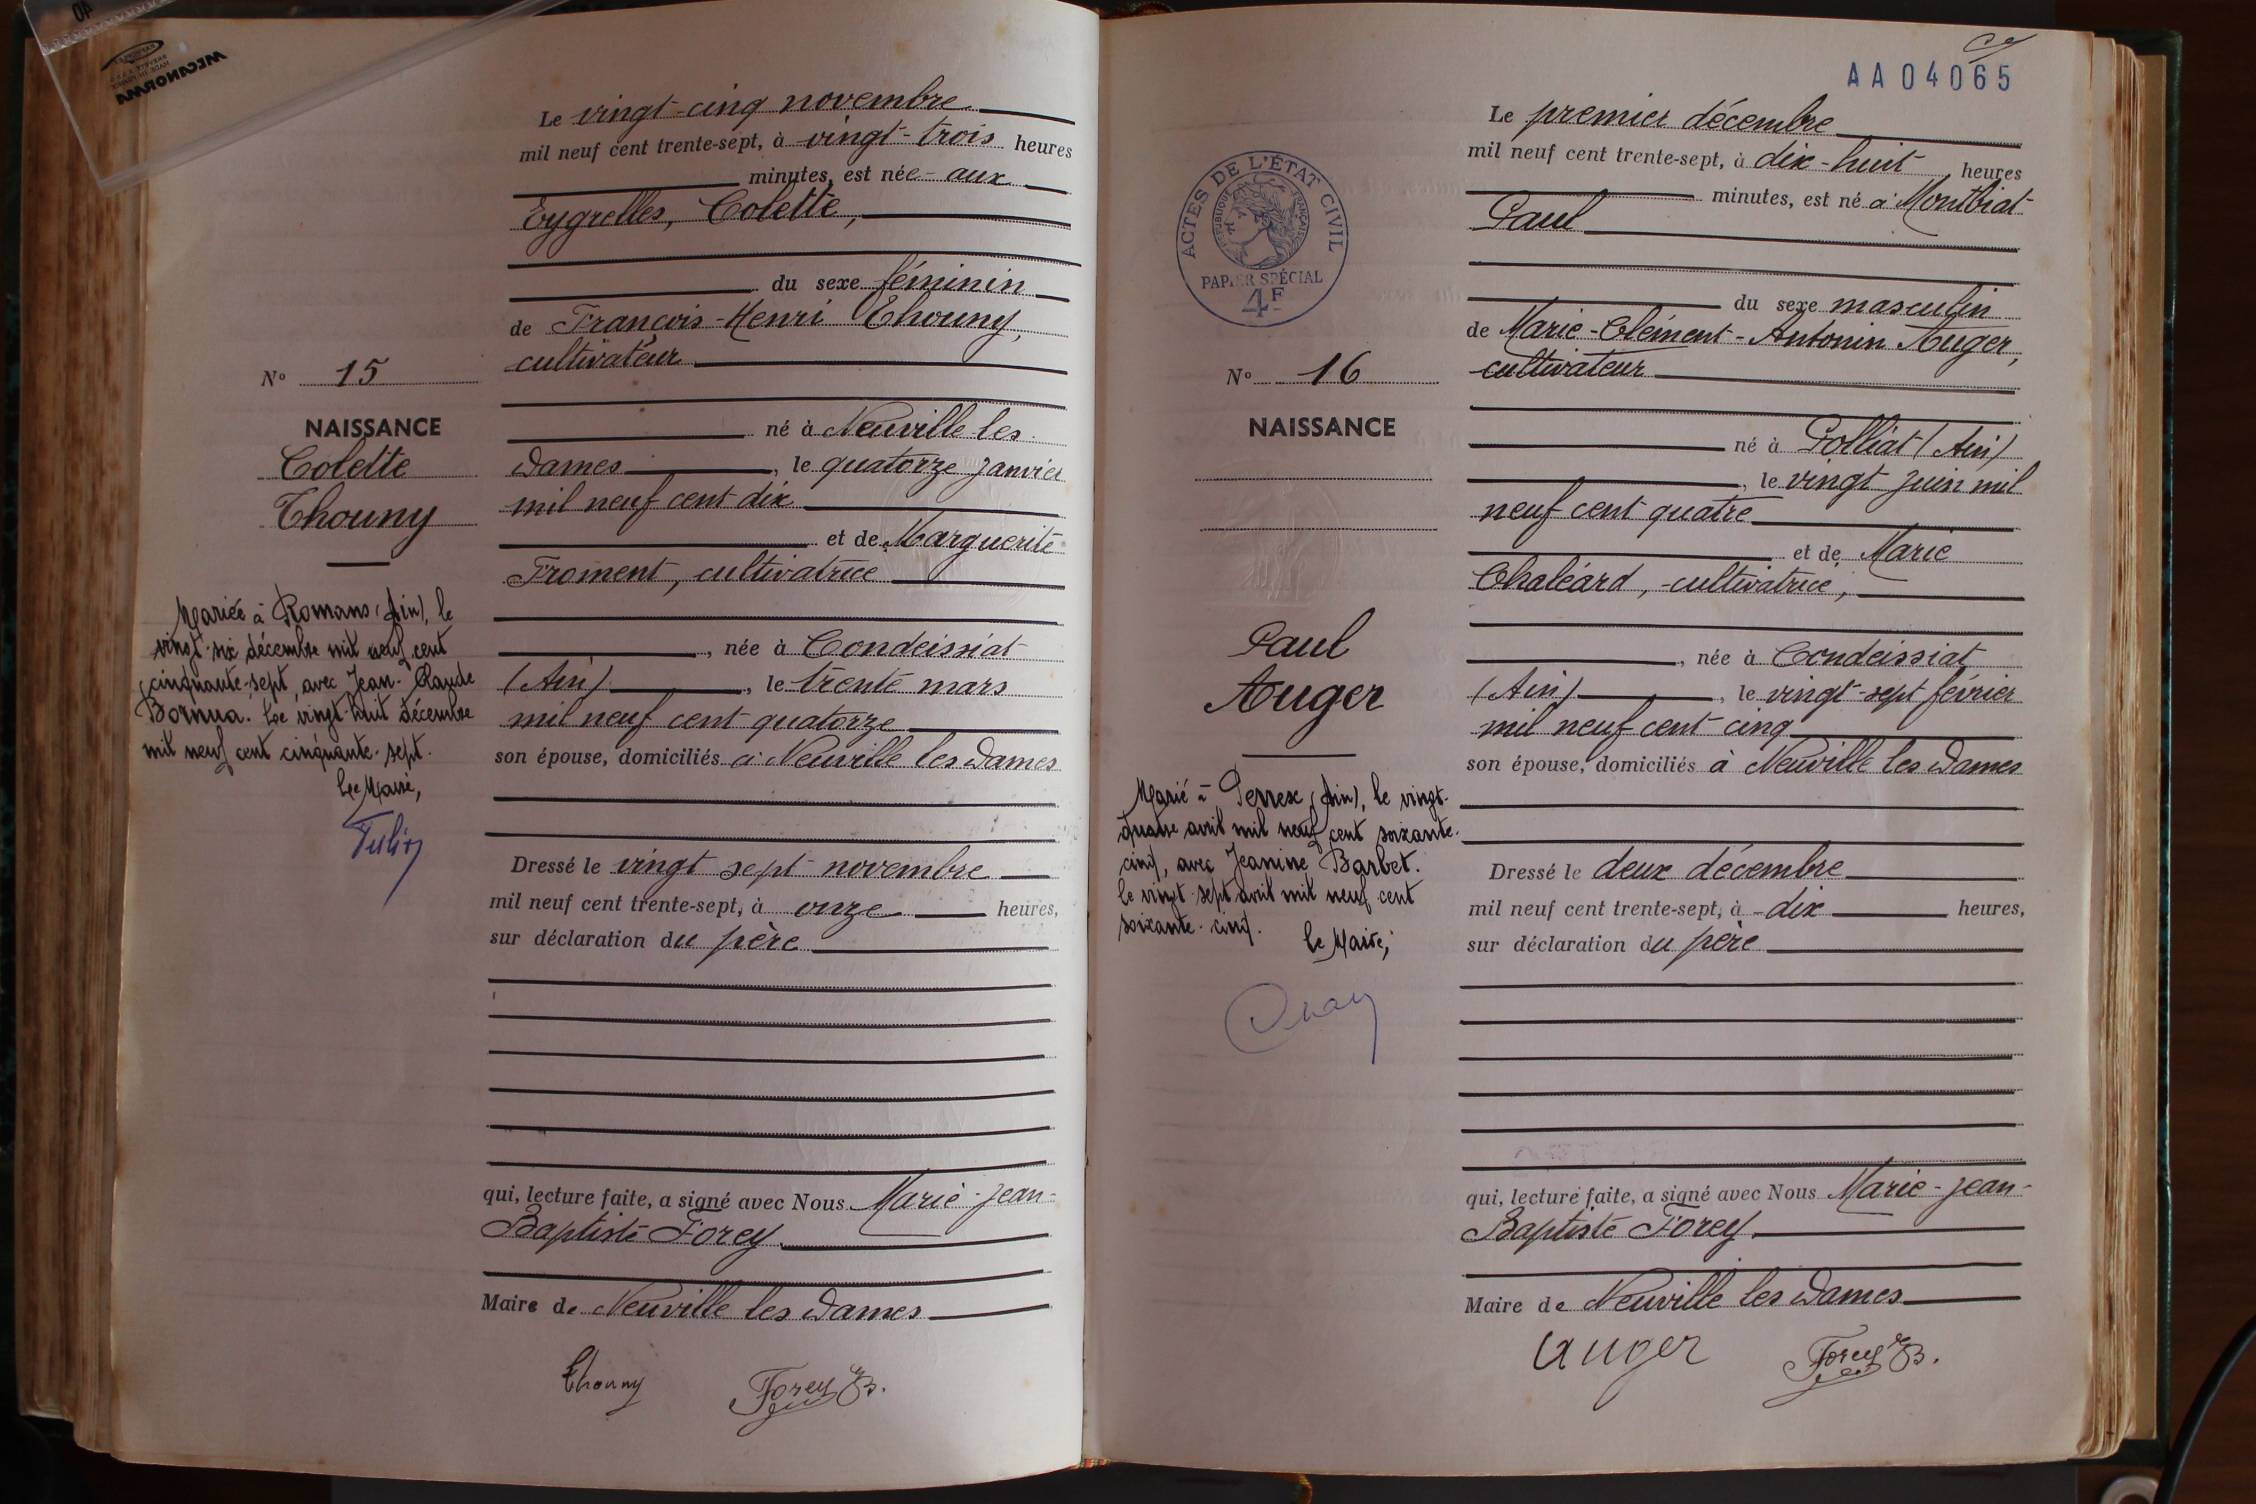 MECANORMA
Le vingt-cinq novembre
mil neuf cent trente-sept, à vingt-trois heures
minutes, est née aux
Eygrelles, Colette,
du sexe féminin
de François-Henri Thouny,
cultivateur
N° 15
NAISSANCE
Colette
Thouny
né à Neuville les
Dames, le quatorze janvier
mil neuf cent dix
et de Marguerite
Froment, cultivatrice
, née à Condeissiat
(Ain), le trente mars
mil neuf cent quatorze
son épouse, domiciliés à Neuville les Dames
Mariée à Romans (Ain), le
vingt-six décembre mil neuf cent
cinquante-sept, avec Jean-Claude
Bornua. Le vingt-huit décembre
mil neuf cent cinquante-sept.
Le Maire,
Dressé le vingt sept novembre
mil neuf cent trente-sept, à onze heures,
sur déclaration du père
qui, lecture faite, a signé avec Nous Marie-Jean-
Baptiste Forey
Maire de Neuville les Dames
Thouny Forey JB.
AA04065
ACTES DE L'ÉTAT CIVIL
RÉPUBLIQUE FRANÇAISE
PAPIER SPÉCIAL
4F
Le premier décembre
mil neuf cent trente-sept, à dix-huit heures
minutes, est né à Montbiat
Paul
du sexe masculin
de Marie-Clément-Antonin Auger,
cultivateur
N° 16
NAISSANCE
né à Polliat (Ain)
, le vingt juin mil
neuf cent quatre
et de Marie
Chaléard, cultivatrice,
Paul
Auger
, née à Condeissiat
(Ain), le vingt-sept février
mil neuf cent cinq
son épouse, domiciliés à Neuville les Dames
Marié à Perrex (Ain), le vingt-
quatre avril mil neuf cent soixante-
cinq, avec Jeanine Barbet.
le vingt-sept avril mil neuf cent
soixante-cinq.
le Maire,
Dressé le deux décembre
mil neuf cent trente-sept, à dix heures,
sur déclaration du père
qui, lecture faite, a signé avec Nous Marie-Jean-
Baptiste Forey
Maire de Neuville les Dames
Auger Forey JB.